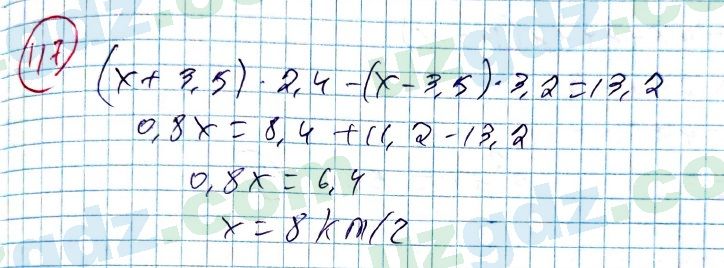 117
(x + 3,5) · 2,4 - (x - 3,5) · 3,2 = 13,2
0,8x = 8,4 + 11,2 - 13,2
0,8x = 6,4
x = 8 km/2